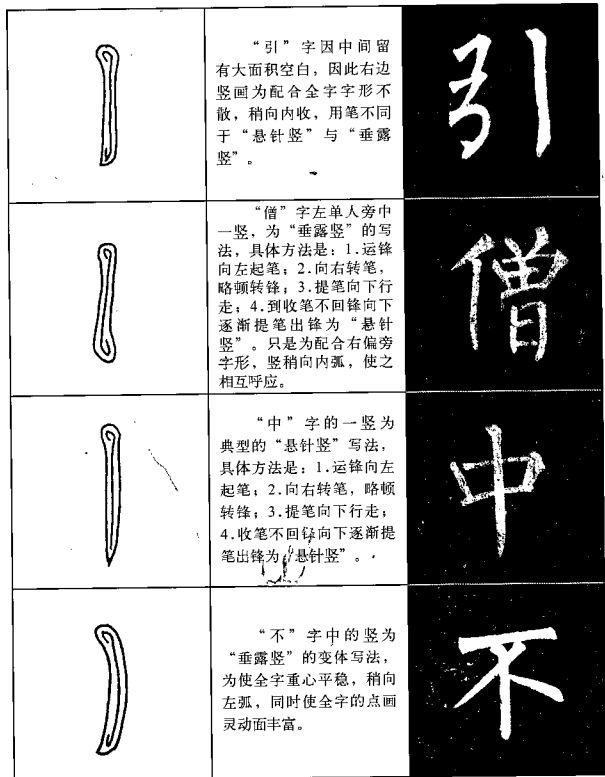 “引”字因中间留
有大面积空白，因此右边
竖画为配合全字字形不
散，稍向内收，用笔不同
于“悬针竖”与“垂露
竖”。
引
“僧”字左单人旁中
一竖，为“垂露竖”的写
法，具体方法是：1.运锋
向左起笔；2.向右转笔，
略顿转锋；3.提笔向下行
走；4.到收笔不回锋向下
逐渐提笔出锋为“悬针
竖”。只是为配合右偏旁
字形，竖稍向内弧，使之
相互呼应。
僧
“中”字的一竖为
典型的“悬针竖”写法，
具体方法是：1.运锋向左
起笔；2.向右转笔，略顿
转锋；3.提笔向下行走；
4.收笔不回锋向下逐渐提
笔出锋为“悬针竖”。
中
“不”字中的竖为
“垂露竖”的变体写法，
为使全字重心平稳，稍向
左弧，同时使全字的点画
灵动面丰富。
不